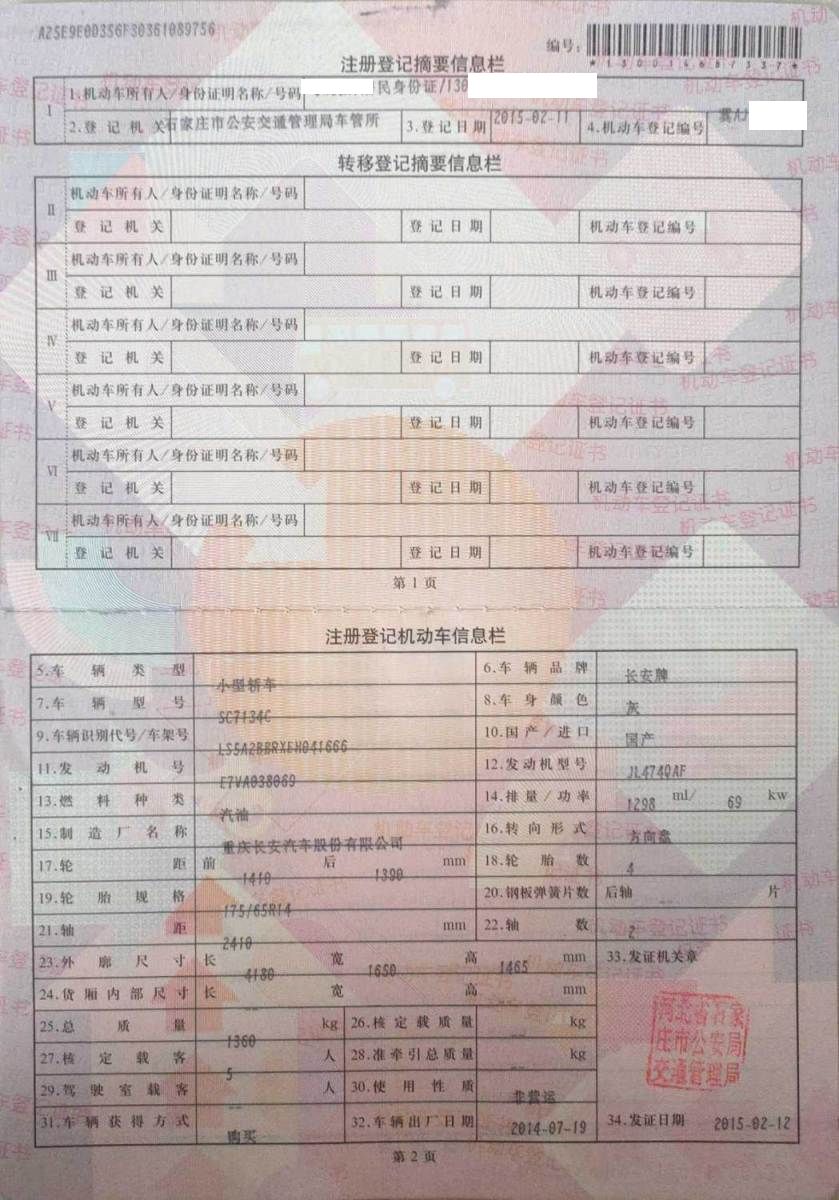 A25E9E00356F30361089756
编号:
*130014687337*
注册登记摘要信息栏
I 1.机动车所有人/身份证明名称/号码 民身份证/130
2.登记机关 石家庄市公安交通管理局车管所 3.登记日期 2015-02-11 4.机动车登记编号 冀A
转移登记摘要信息栏
II 机动车所有人/身份证明名称/号码
登记机关 登记日期 机动车登记编号
III 机动车所有人/身份证明名称/号码
登记机关 登记日期 机动车登记编号
IV 机动车所有人/身份证明名称/号码
登记机关 登记日期 机动车登记编号
V 机动车所有人/身份证明名称/号码
登记机关 登记日期 机动车登记编号
VI 机动车所有人/身份证明名称/号码
登记机关 登记日期 机动车登记编号
VII 机动车所有人/身份证明名称/号码
登记机关 登记日期 机动车登记编号
第1页
注册登记机动车信息栏
5.车辆类型 小型轿车 6.车辆品牌 长安牌
7.车辆型号 SC7134C 8.车身颜色 灰
9.车辆识别代号/车架号 LS5A2BBRXEH041666 10.国产/进口 国产
11.发动机号 E7VA038069 12.发动机型号 JL474QAF
13.燃料种类 汽油 14.排量/功率 1298 ml/ 69 kw
15.制造厂名称 重庆长安汽车股份有限公司 16.转向形式 方向盘
17.轮距 前 1410 后 1390 mm 18.轮胎数 4
19.轮胎规格 175/65R14 20.钢板弹簧片数 后轴 -- 片
21.轴距 2410 mm 22.轴数 2
23.外廓尺寸 长 4180 宽 1650 高 1465 mm 33.发证机关章
24.货厢内部尺寸 长 -- 宽 -- 高 -- mm
25.总质量 1360 kg 26.核定载质量 -- kg
27.核定载客 5 人 28.准牵引总质量 -- kg
29.驾驶室载客 -- 人 30.使用性质 非营运
31.车辆获得方式 购买 32.车辆出厂日期 2014-07-19 34.发证日期 2015-02-12
河北省石家
庄市公安局
交通管理局
第2页